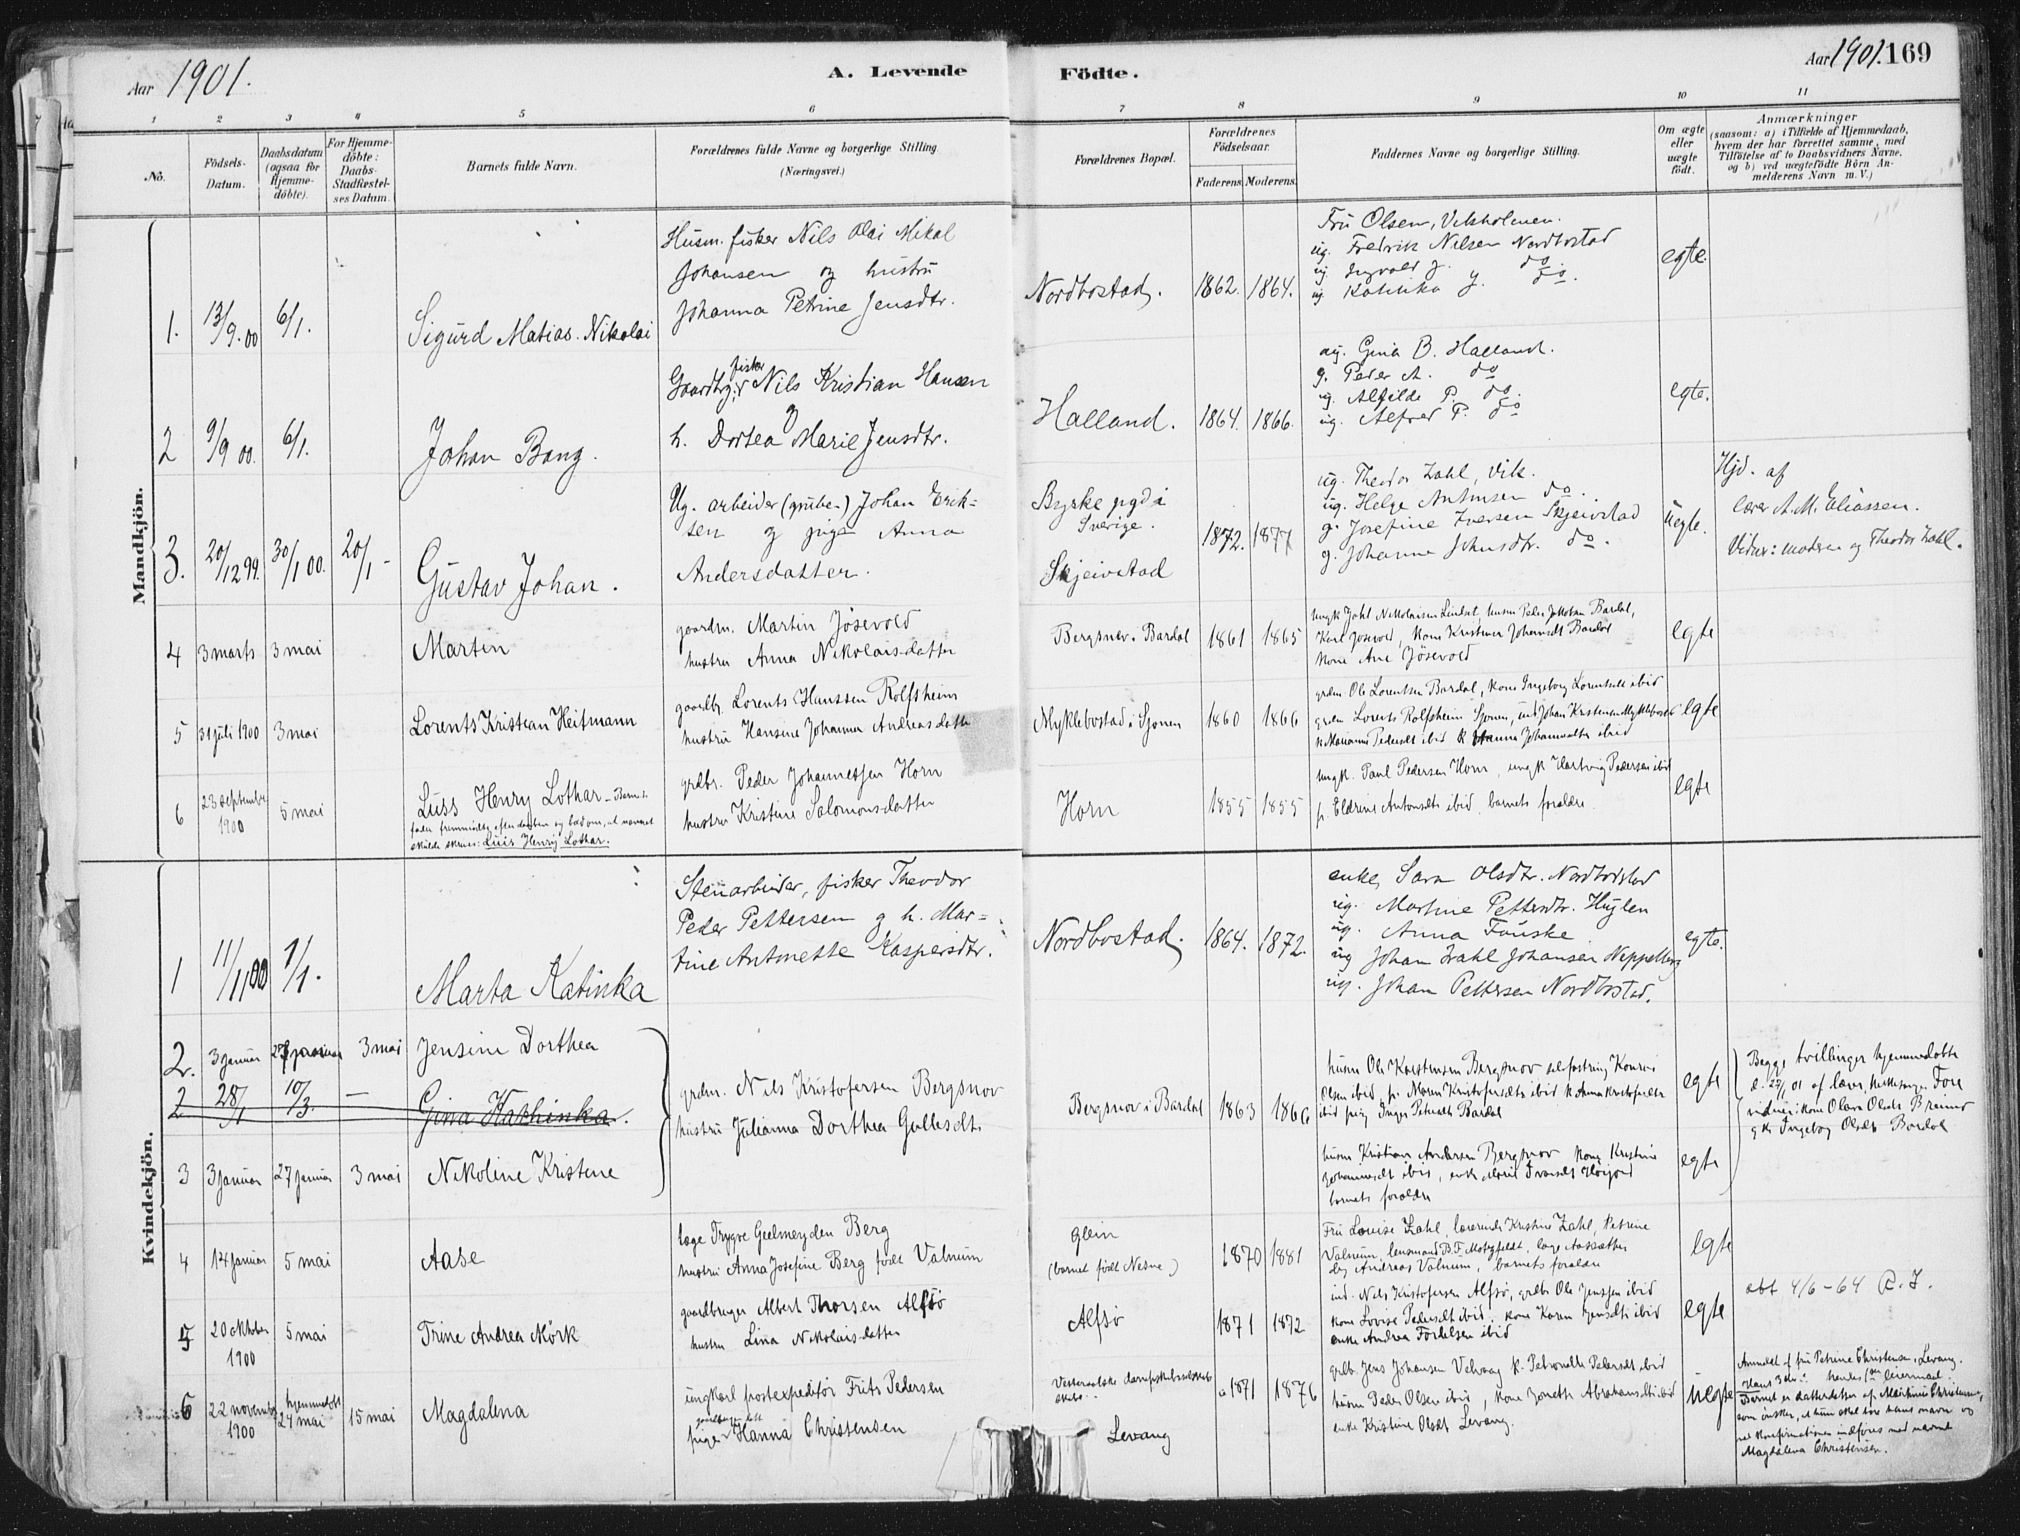 Aar 1901.
A. Levende
Födte.
Aar 1901. 169
1 2 3 4 5 6 7 8 9 10 11
No.
Födsels-
Datum.
Daabsdatum
(ogsaa for
Hjemme-
döbte).
For Hjemme-
döbte:
Daabs-
Stadfæstel-
ses Datum.
Barnets fulde Navn.
Forældrenes fulde Navne og borgerlige Stilling
(Næringsvei.)
Forældrenes Bopæl.
Forældrenes
Födselsaar.
Faderens. Moderens.
Faddernes Navne og borgerlige Stilling.
Om ægte
eller
uægte
födt.
Anmærkninger
(saasom: a) i Tilfælde af Hjemmedaab,
hvem der har forrettet samme, med
Tilföielse af to Daabsvidners Navne,
og b) ved uægtefödte Börn An-
melderens Navn m. V.)
Mandkjön.
1. 13/9.00 6/1. Sigurd Matias Nikolai
Husm. fisker Nils Olai Mikal
Johansen og hustru
Johanna Petrine Jensdtr.
Nordbostad. 1862. 1864.
Fru Olsen, Vikholmen.
ug. Fredrik Nilsen Nordbostad
ug. Ingvald J. do
ug. Katinka J. do.
egte.
2 9/9 00. 6/1. Johan Bang.
fisker
Gaardbr. Nils Kristian Hansen
h. Dortea Marie Jensdtr.
Halland. 1864. 1866.
ug. Gina B. Halland.
g. Peder A. do
ug. Alfilde P. do.
ug. Alfred P. do
egte.
3. 20/12 99. 30/1 00. 20/1 - Gustav Johan.
Ug. arbeider (grube-) Johan Erik-
sen og pige Anna
Andersdatter.
Byske pgd i
Sverige.
Skjeivstad
1872. 1877
ug. Theodor Zahl, Vik.
ug. Helge Antonsen do.
g. Josefine Iversen Skjeivstad
g. Johanna Johnsdtr. do.
uegte.
Hjd. af
lærer A. M. Eliassen.
Vidner: moderen og Theodor Zahl.
4 3 marts 3 mai Martin
gaardm. Martin Jösevold
hustru Anna Nikolaisdatter
Bergsnev i Bardal 1861 1865
Karl Josevold, Kone Kristine Johansdt Bardal
Kone Ane Jösevold
egte
5 31 juli 1900 3 mai Lorents Kristian Heitmann
gaardbr. Lorents Hanssen Rolfsheim
hustru Hansine Johanna Andreasdatter
Myklebostad i Sjonen 1860 1866
grdm. Ole Lorentsen Bardal, kone Ingeborg Lorentsdt ibid
grdm Lorents Rolfsheim Sjonen,
k Marianne Pedersdt ibid k Hanna Johannesdatter ibid
egte
6 23 september 1900 5 mai Luss Henry Lothar - Barnets
fader fremmødte efter daaben og bad om, at navnet
skulde skrives: Luis Henry Lothar.
grdbr. Peder Johannessen Horn
hustru Kristine Salomonsdatter
Horn 1855 1855
ungk. Paul Pedersen Horn, ungk Hartvig Pedersen ibid
p. Eldrine Antonsdt ibid, barnets forældre.
egte
Kvindekjön.
1 11/11 00 1/1. Marta Katinka
Stenarbeider, fisker Theodor
Peder Pettersen g h. Mar-
tine Antonette Kaspersdtr.
Nordbostad. 1864. 1872.
enke, Sara Olsdtr. Nordbostad
ug. Martine Pettersdtr. Huglen
ug. Anna Fauske
ug Johan Zahl Johansen Neppelberg
ug. Johan Pettersen Nordbostad.
egte.
2. 3 januar 27 januar 3 mai Jensine Dorthea
2 28/1 10/3. - Gina Kathinka.
grdm. Nils Kristofersen Bergsnov
hustru Julianna Dorthea Gullesdt.
Bergsnov i Bardal 1863 1866
husm Ole Kristensen Bergsnov
Olsen ibid p. Maren Kristofersdt ibid k Anna Kristofersdt
ibid pig Inger Petersdt Bardal
egte
Begge tvillinger hjemmedøbte
d. 27/1 01 af lærer
vidner: kone Olava Olsdt
Ingeborg Olsdt Bardal
3 3 januar 27 januar 3 mai Nikoline Kristine
husm Kristian Andersen Bergsnov Kone Kristine
Johannesdt ibid,
barnets forældre
egte
4 14 januar 5 mai Aase
læge Trygve Gulmeyden Berg
hustru Anna Josefine Berg født Valnum
Glein
(barnet født Nesne)
1870 1881
Fru Louise Zahl, lærerinde Kristine Zahl, Petrine
Valnum, lensmand B. F. Motzfeldt,
Andreas Valnum, barnets forældre
egte
5 20 oktober 1900 5 mai Trine Andrea Mörk
gaardbruger Albert Thorsen Alfsö
hustru Lina Nikolaisdatter
Alfsö 1871 1872
ind. Nils Kristofersen Alfsö, grdbr Ole Jenssen ibid
kone Lovise Pedersdt ibid, kone Karen Jensdt ibid
enke Andrea ibid
egte
abt 4/6-64
6 22 november 1900 hjemmedøbt 24 mai 15 mai Magdalena
ungkarl postexpeditør Frits Pedersen
pige Hanna Christensen
Vesteraalske dampskibsselskab
Levang
1871 1876
grdbr. Jens Johansen Velvaag k. Petronelle Pedersdt ibid
husm Peder Olsen ibid, kone Abrahamsdt ibid
enke Kristine Olsdt Levang.
uegte
Anmeldt af fru Petrine Christensen, Levang.
Hans 3die, hendes 1ste leiermaal.
Barnet er datterdatter af Martinus Christensen,
som ønsker, at hun skal bære hans navn og
ved konfirmationen indføres med navnet
Magdalena Christensen.